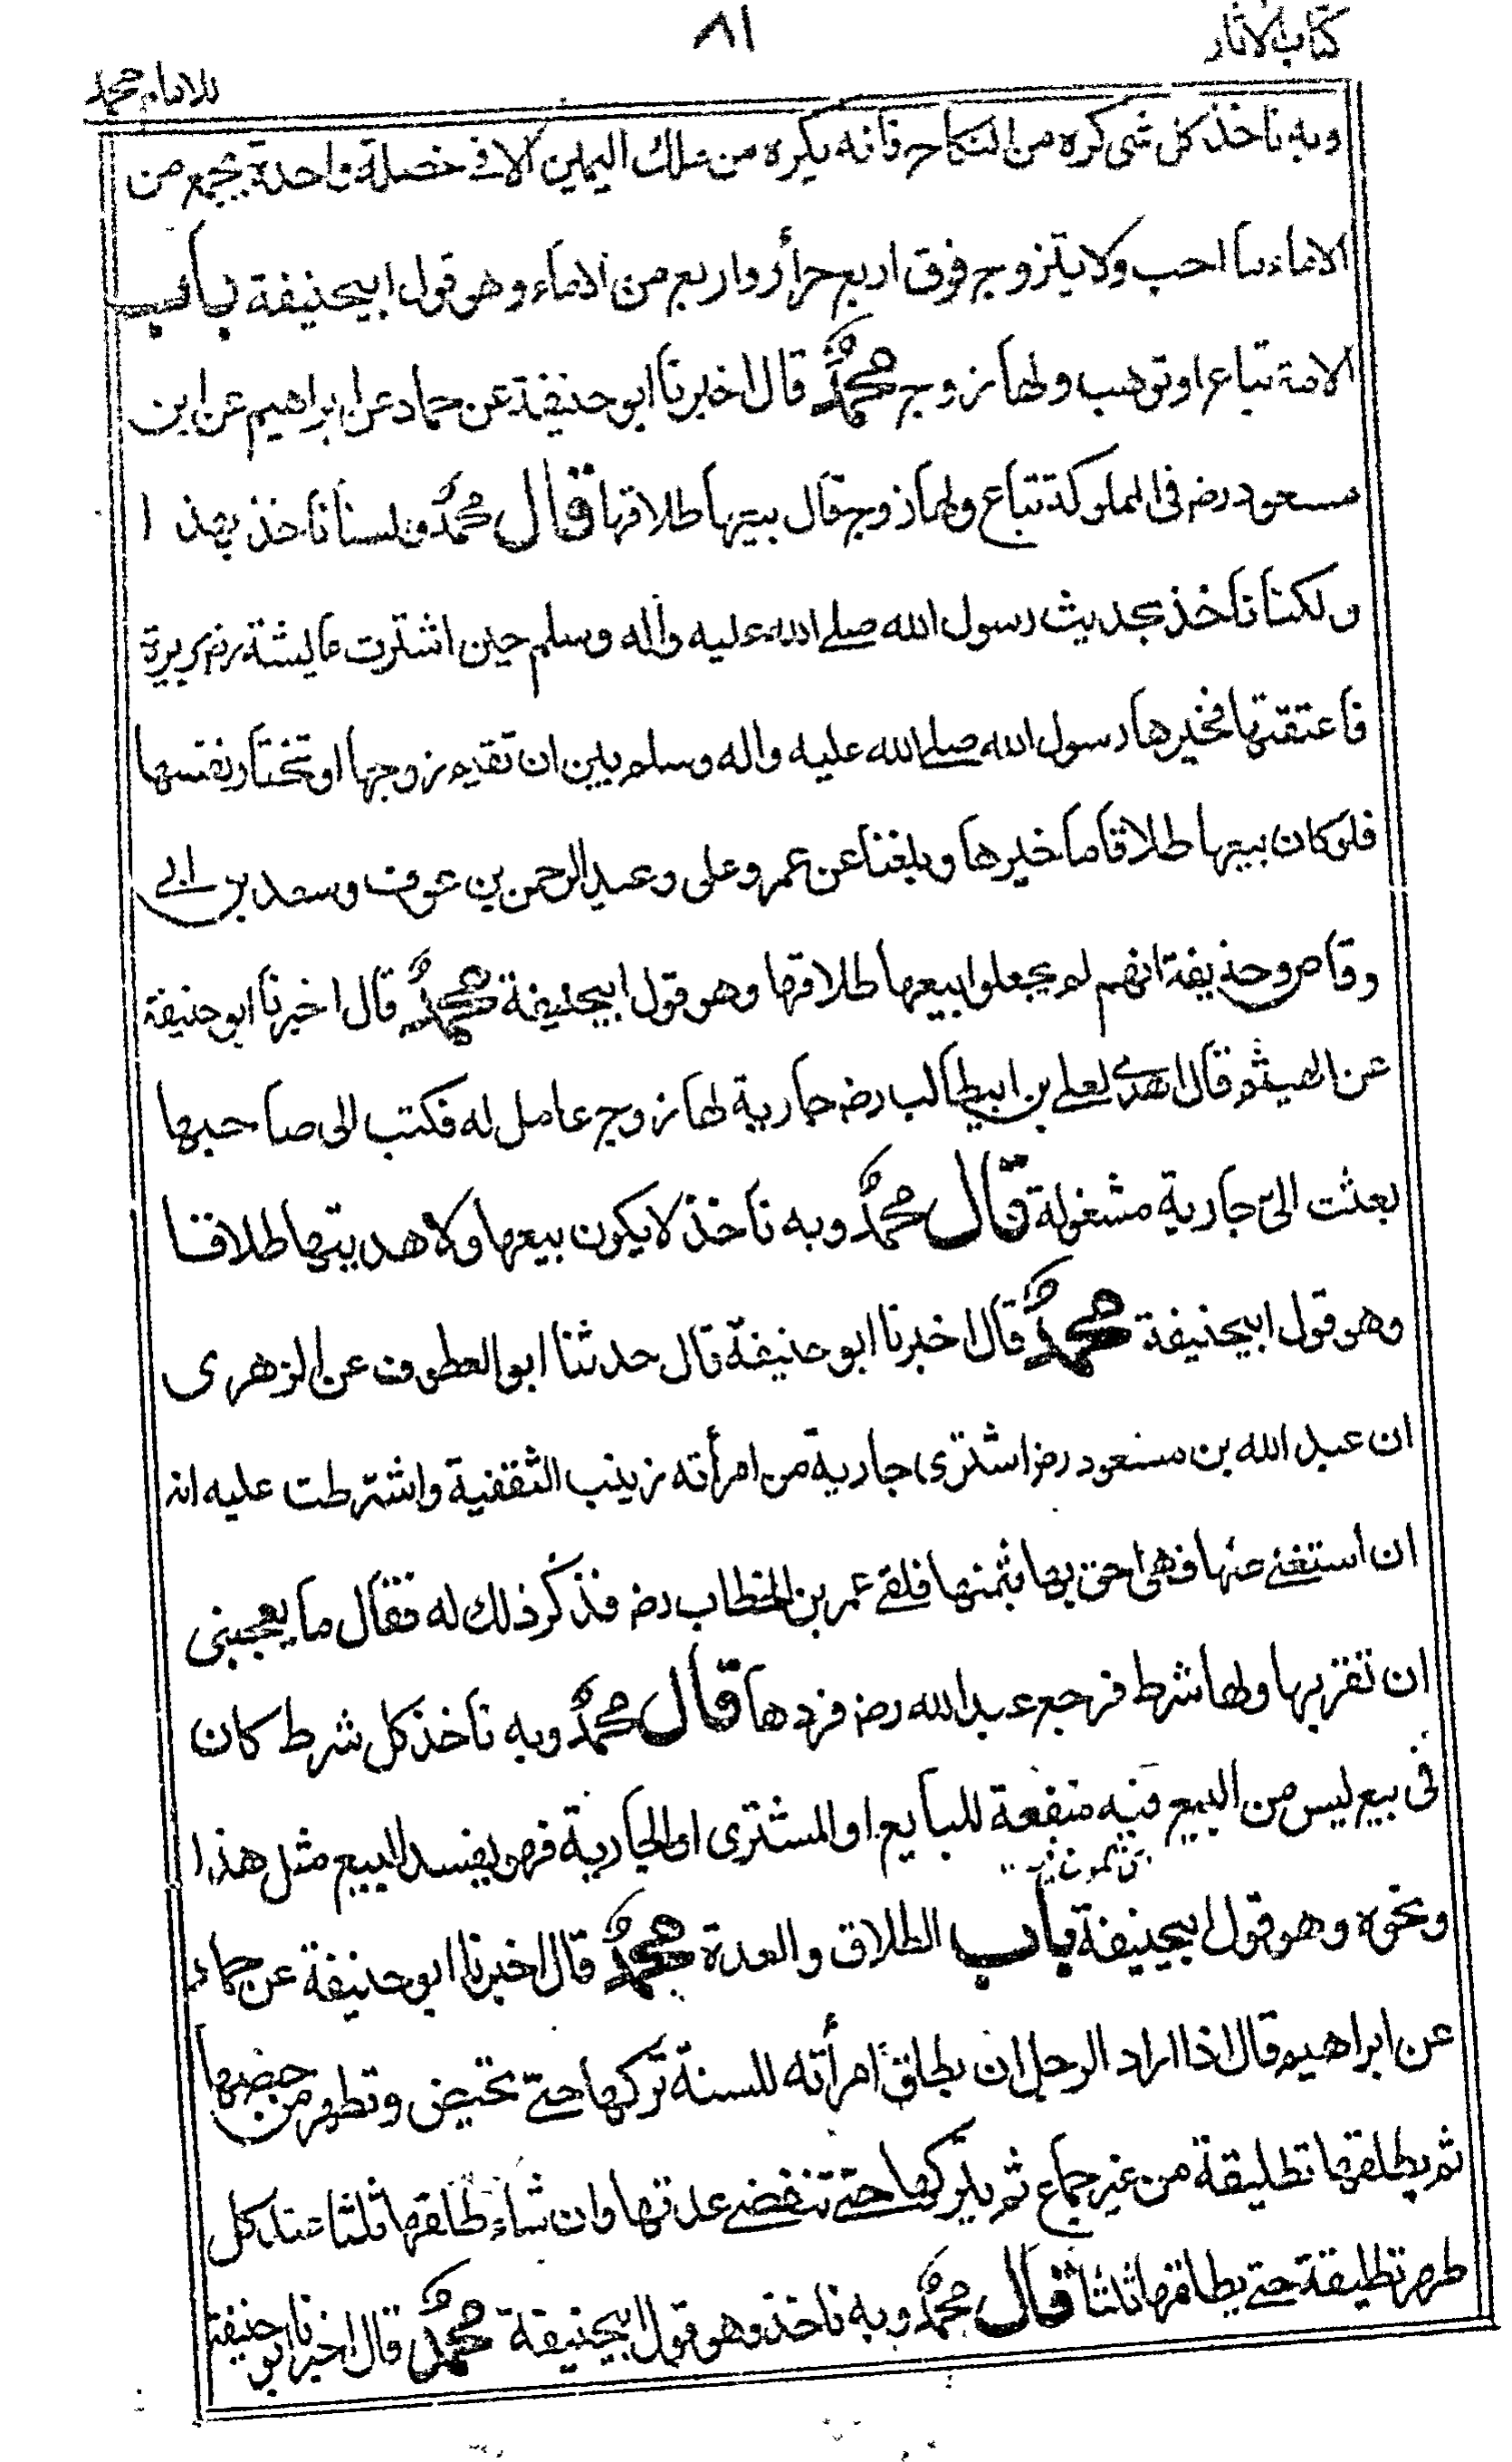 كتاب الاثار
٨١
للامام محمد
وبه ناخذ كل شى كره من النكاح فانه يكره من ملك اليمين الا فى خصلة واحدة يجمع من
الاماء ما احب ولا يتزوج فوق اربع حرأر واربع من الاماء وهو قول ابيحنيفة باب
الامة تباع او توهب ولها زوج محمدٌ قال اخبرنا ابو حنيفة عن حماد عن ابراهيم عن ابن
مسعود رضـ فى المملوكة تباع ولها زوج قال بيعها طلاقها قال محمدٌ ولسنا ناخذ بهذا
ولكنا ناخذ بحديث رسول الله صلے الله عليه واٰله وسلم حين اشترت عايشة رضـ بريرة
فاعتقتها فخيرها رسول الله صلے الله عليه واله وسلم بين ان تقيم زوجها او تختار نفسها
فلو كان بيعها طلاقا ما خيرها وبلغنا عن عمر وعلى وعبد الرحمن بن عوف وسعد بن ابے
وقاص وحذيفة انهم لم يجعلوا بيعها طلاقها وهو قول ابيحنيفة محمدٌ قال اخبرنا ابو حنيفة
عن الهيثم قال اهدے لعلے بن ابيطالب رضـ جارية لها زوج عامل له فكتب الى صاحبها
بعثت الى جارية مشغولة قال محمدٌ وبه ناخذ لا يكون بيعها ولا هديتها طلاقا
وهو قول ابيحنيفة محمدٌ قال اخبرنا ابو حنيفة قال حدثنا ابو العطوف عن الزهرى
ان عبد الله بن مسعود رضـ اشترى جارية من امرأته زينب الثقفية واشترطت عليه انه
ان استغنے عنها فهى احق بها بثمنها فلقے عمر بن الخطاب رضـ فذكر ذلك له فقال ما يعجبنى
ان تقربها ولها شرط فرجع عبد الله رضـ فردها قال محمدٌ وبه ناخذ كل شرط كان
فى بيع ليس من البيع فيه منفعة للبايع او المشترى او الجارية فهو يفسد البيع مثل هذا
ونحوه وهو قول ابيحنيفة باب الطلاق والعدة محمدٌ قال اخبرنا ابو حنيفة عن حماد
عن ابراهيم قال اذا اراد الرجل ان يطلق امرأته للسنة تركها حتے تحيض وتطهر من حيضها
ثم يطلقها تطليقة من غير جماع ثم يتركها حتے تنقضے عدتها وان شاء طلقها ثلثا عند كل
طهر تطليقة حتے يطلقها ثلثا قال محمدٌ وبه ناخذ وهو قول ابيحنيفة محمدٌ قال اخبرنا ابو حنيفة